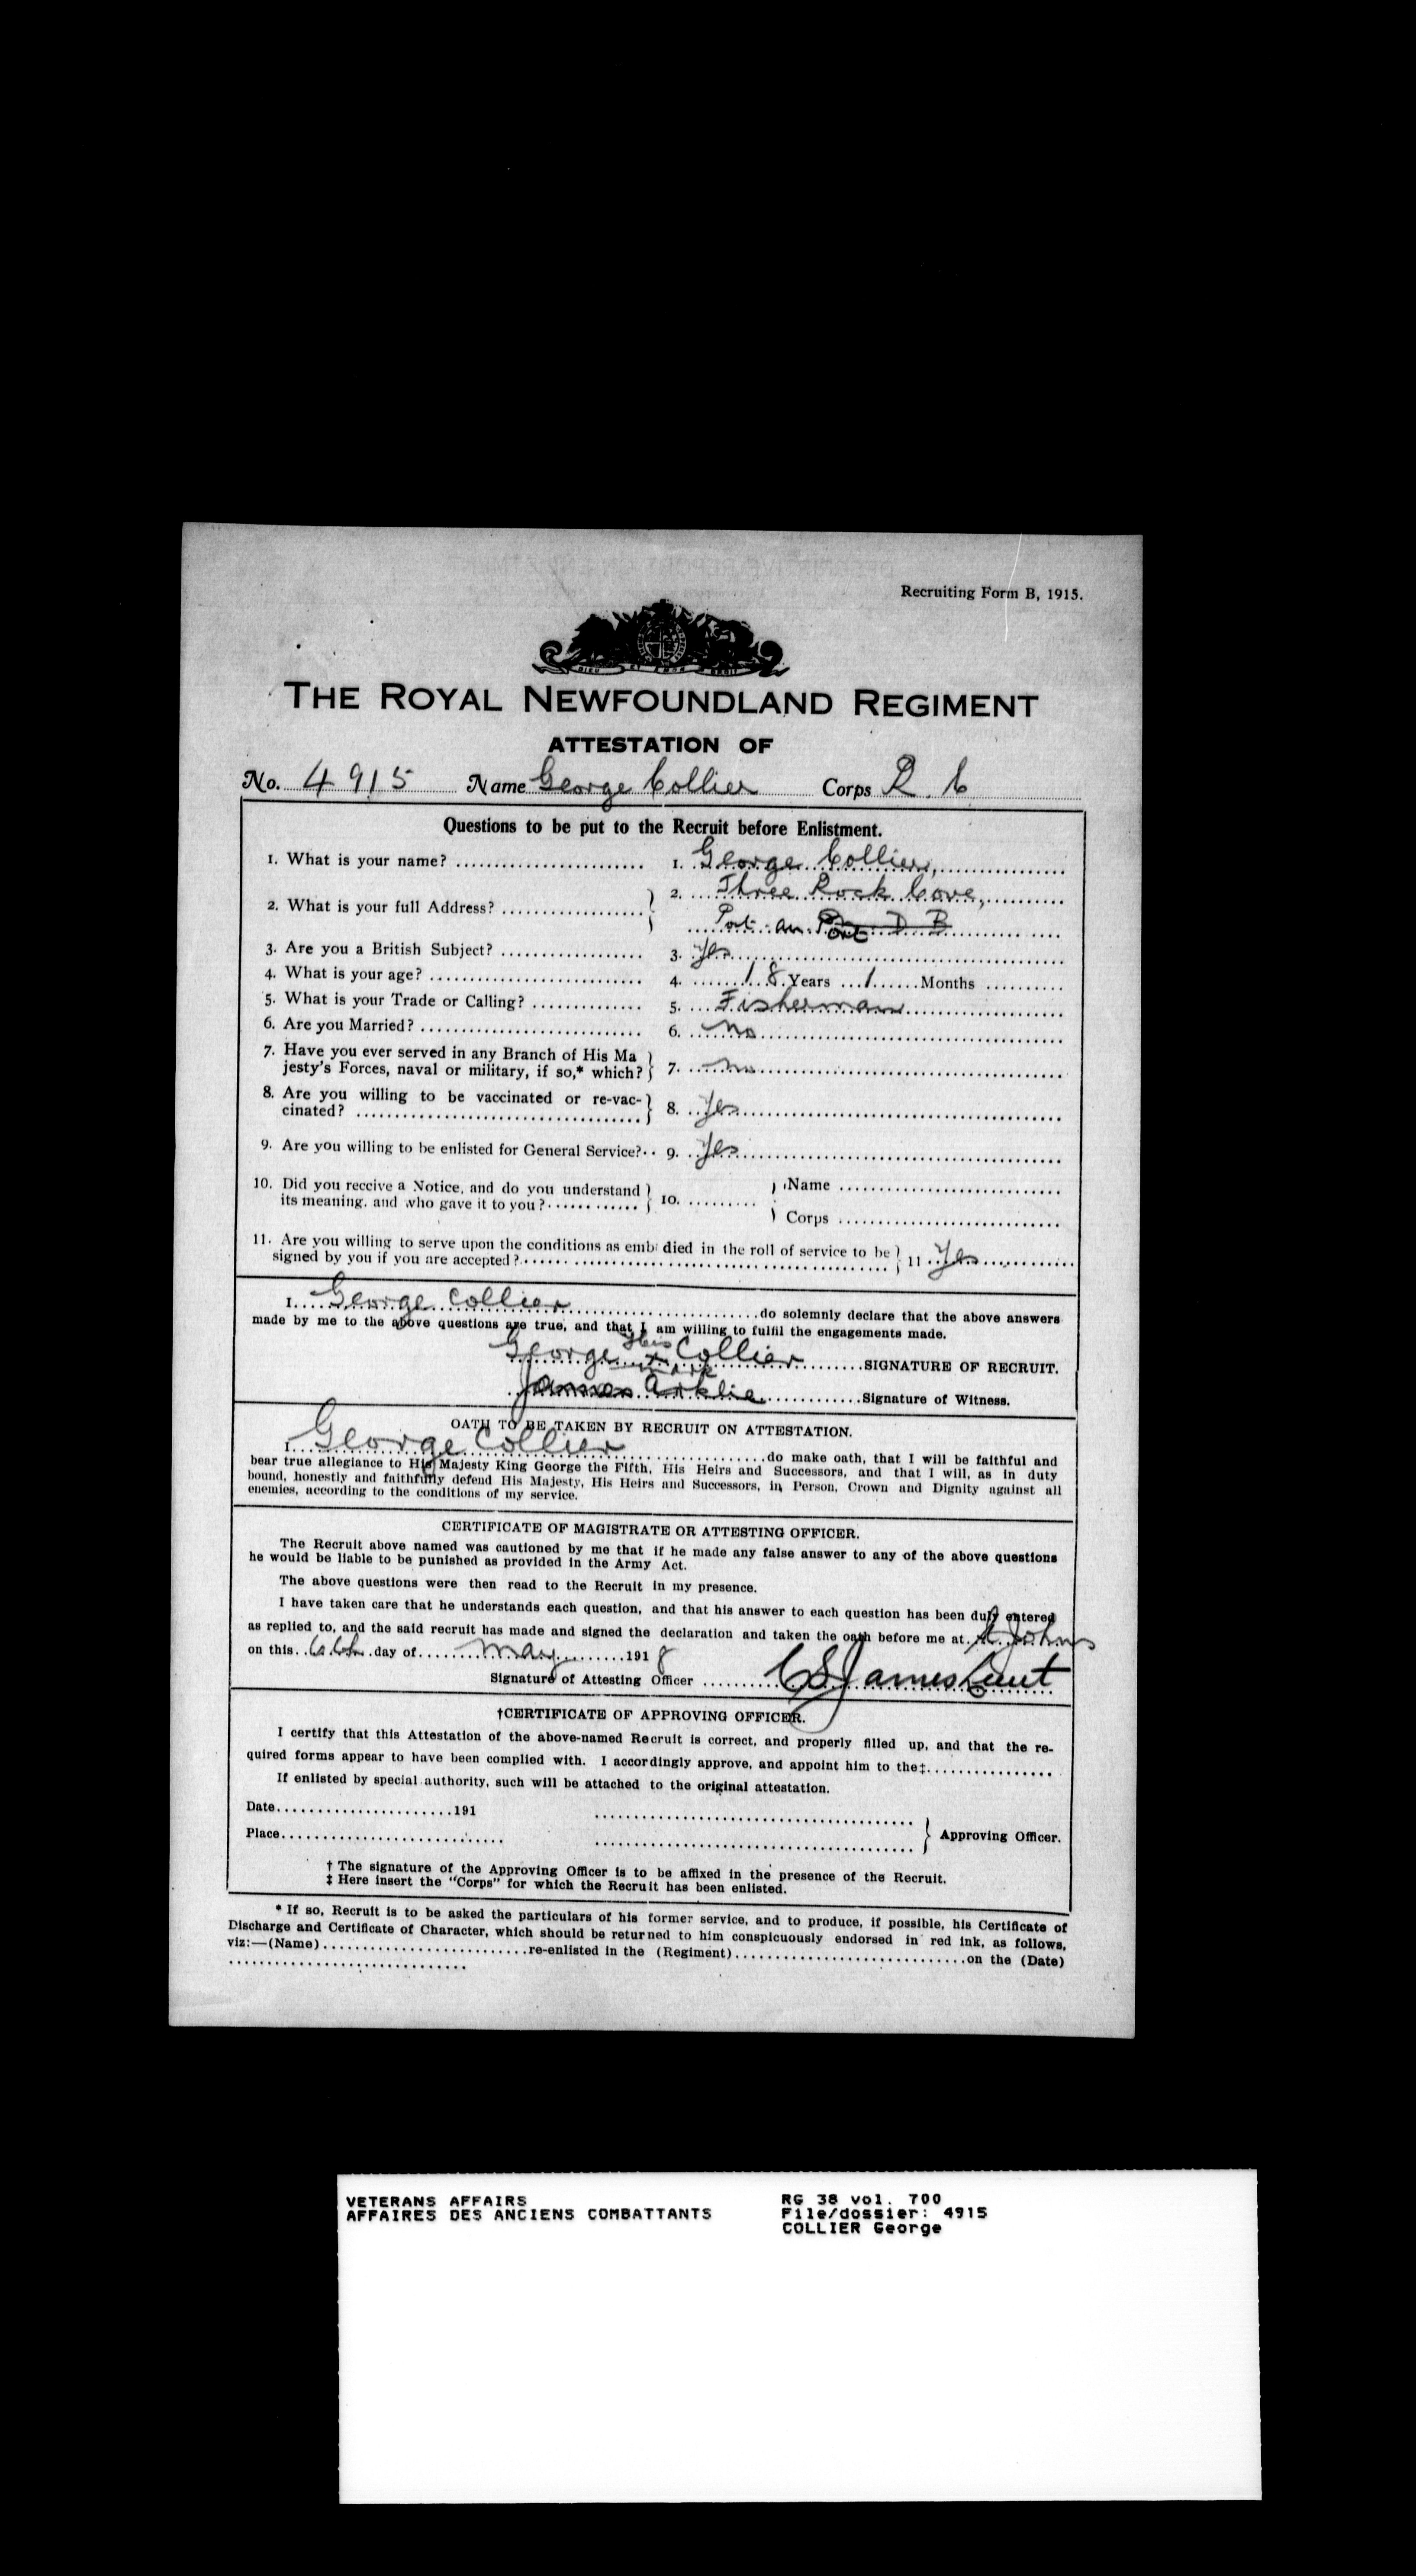 Recruiting Form B, 1915.
DIEU ET MON DROIT
THE ROYAL NEWFOUNDLAND REGIMENT
ATTESTATION OF
No. 4915 Name George Collier Corps R. C
Questions to be put to the Recruit before Enlistment.
1. What is your name? ........ 1. George Collier,
2. What is your full Address? ........ 2. Three Rock Cove,
Port au Port D B
3. Are you a British Subject? ........ 3. Yes
4. What is your age? ........ 4. 18 Years 1 Months
5. What is your Trade or Calling? ........ 5. Fisherman
6. Are you Married? ........ 6. No
7. Have you ever served in any Branch of His Ma
jesty's Forces, naval or military, if so,* which? 7. No
8. Are you willing to be vaccinated or re-vac-
cinated? ........ 8. Yes
9. Are you willing to be enlisted for General Service? 9. Yes
10. Did you receive a Notice, and do you understand
its meaning, and who gave it to you? ........ 10. ........ Name ........
Corps ........
11. Are you willing to serve upon the conditions as embodied in the roll of service to be
signed by you if you are accepted? ........ 11 Yes
I. George Collier ........ do solemnly declare that the above answers
made by me to the above questions are true, and that I am willing to fulfil the engagements made.
George His x mark Collier ........ SIGNATURE OF RECRUIT.
James Arklie ........ Signature of Witness.
OATH TO BE TAKEN BY RECRUIT ON ATTESTATION.
I. George Collier ........ do make oath, that I will be faithful and
bear true allegiance to His Majesty King George the Fifth, His Heirs and Successors, and that I will, as in duty
bound, honestly and faithfully defend His Majesty, His Heirs and Successors, in Person, Crown and Dignity against all
enemies, according to the conditions of my service.
CERTIFICATE OF MAGISTRATE OR ATTESTING OFFICER.
The Recruit above named was cautioned by me that if he made any false answer to any of the above questions
he would be liable to be punished as provided in the Army Act.
The above questions were then read to the Recruit in my presence.
I have taken care that he understands each question, and that his answer to each question has been duly entered
as replied to, and the said recruit has made and signed the declaration and taken the oath before me at St Johns
on this 6th day of May 1918
Signature of Attesting Officer ........ C S James Lieut
†CERTIFICATE OF APPROVING OFFICER.
I certify that this Attestation of the above-named Recruit is correct, and properly filled up, and that the re-
quired forms appear to have been complied with. I accordingly approve, and appoint him to the‡........
If enlisted by special authority, such will be attached to the original attestation.
Date........191
Place........ Approving Officer.
† The signature of the Approving Officer is to be affixed in the presence of the Recruit.
‡ Here insert the "Corps" for which the Recruit has been enlisted.
* If so, Recruit is to be asked the particulars of his former service, and to produce, if possible, his Certificate of
Discharge and Certificate of Character, which should be returned to him conspicuously endorsed in red ink, as follows,
viz:—(Name)........re-enlisted in the (Regiment)........on the (Date)
........
VETERANS AFFAIRS RG 38 vol. 700
AFFAIRES DES ANCIENS COMBATTANTS File/dossier: 4915
COLLIER George